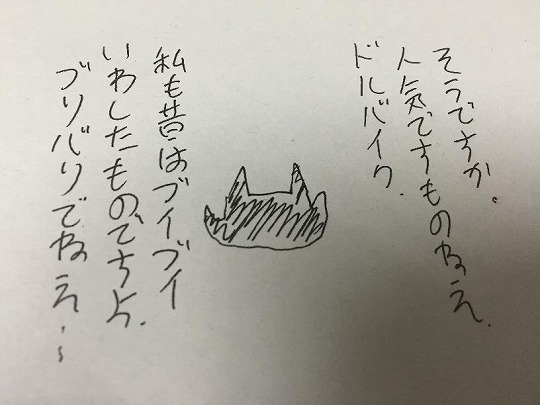 そうですか。
人気ですものねえ、
ドルバイク、
私も昔はブイブイ
いわしたものですよ、
ブリバリでねえ、〜